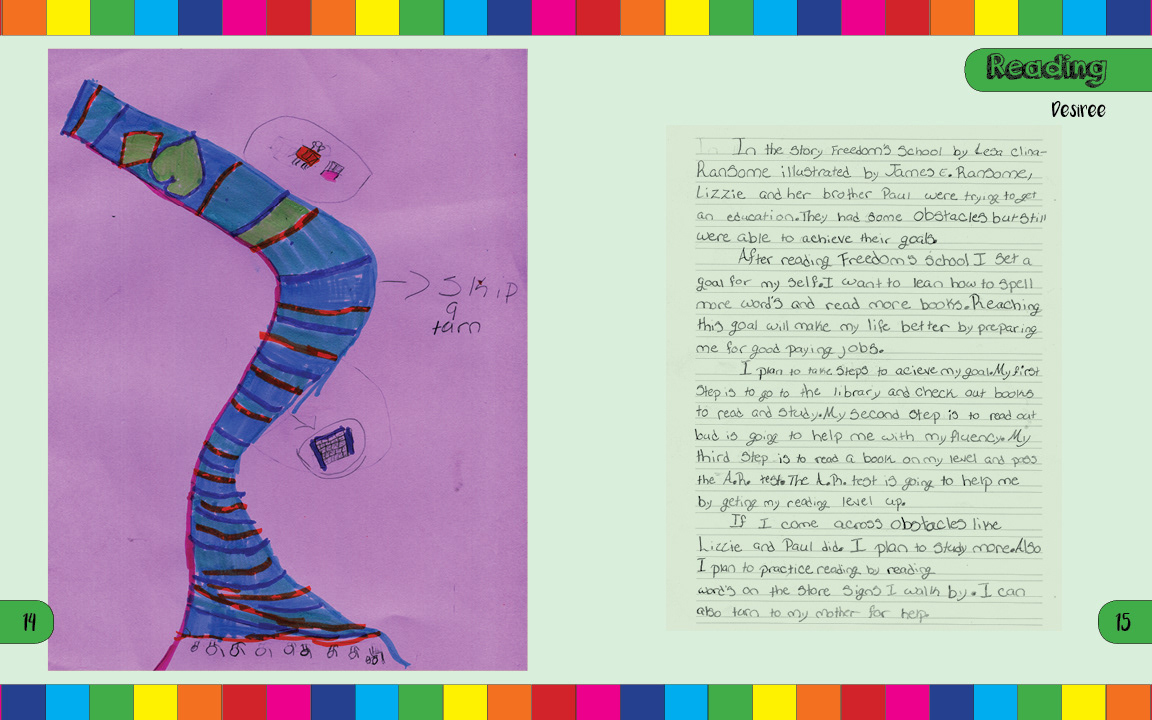 SKIP
a
tarn
14
Reading
Desiree
In the Story Freedom's School by Lesa Cline-
Ransome illustrated by James E. Ransome,
Lizzie and her brother Paul were trying to get
an education. They had some obstacles but still
were able to achieve their goals.
After reading Freedom's School I set a
goal for my self. I want to lean how to spell
more word's and read more books. Reaching
this goal will make my life better by preparing
me for good paying jobs.
I plan to take steps to acieve my goal. My first
step is to go to the library and check out books
to read and study. My second step is to read out
loud is going to help me with my fluency. My
third step is to read a book on my level and pass
the A.R. test. The A.R. test is going to help me
by geting my reading level up.
If I come across obstacles like
Lizzie and Paul did. I plan to study more. Also
I plan to practice reading by reading
word's on the store signs I walk by. I can
also tarn to my mother for help.
15